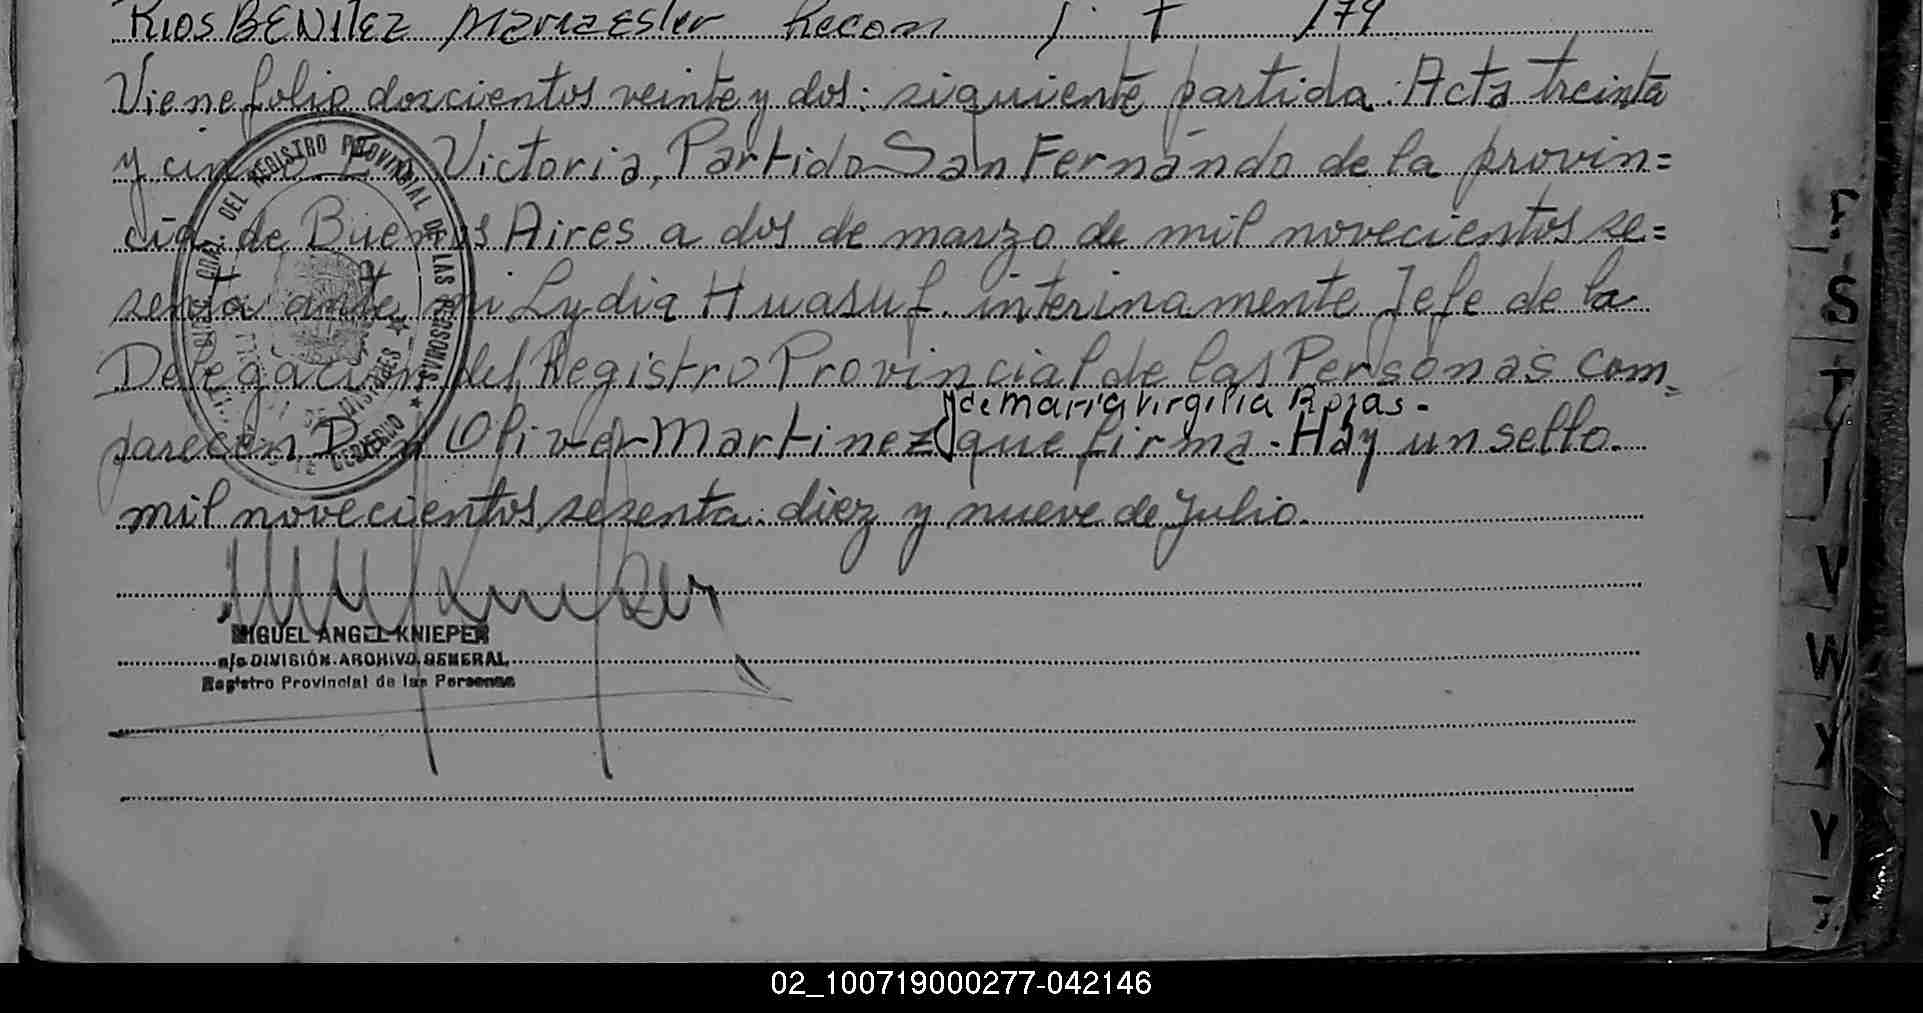 RIOS BENITEZ Maria Ester Recon 1 T 179
Viene folio doscientos veinte y dos: siguiente partida: Acta treinta
y cinco En Victoria, Partido San Fernando de la provin=
cia de Buenos Aires a dos de marzo de mil novecientos se=
senta ante mi Lydia Huasuf. interinamente Jefe de la
Delegación del Registro Provincial de las Personas com=
y de María Virgilia Rojas.-
parecen Don Oliver Martinez que firma. Hay un sello.
mil novecientos sesenta. diez y nueve de Julio.
DEL REGISTRO PROVINCIAL DE LAS PERSONAS
MIGUEL ANGEL KNIEPER
a/c DIVISIÓN ARCHIVO GENERAL
Registro Provincial de las Personas
S
T
V
W
X
Y
02_100719000277-042146